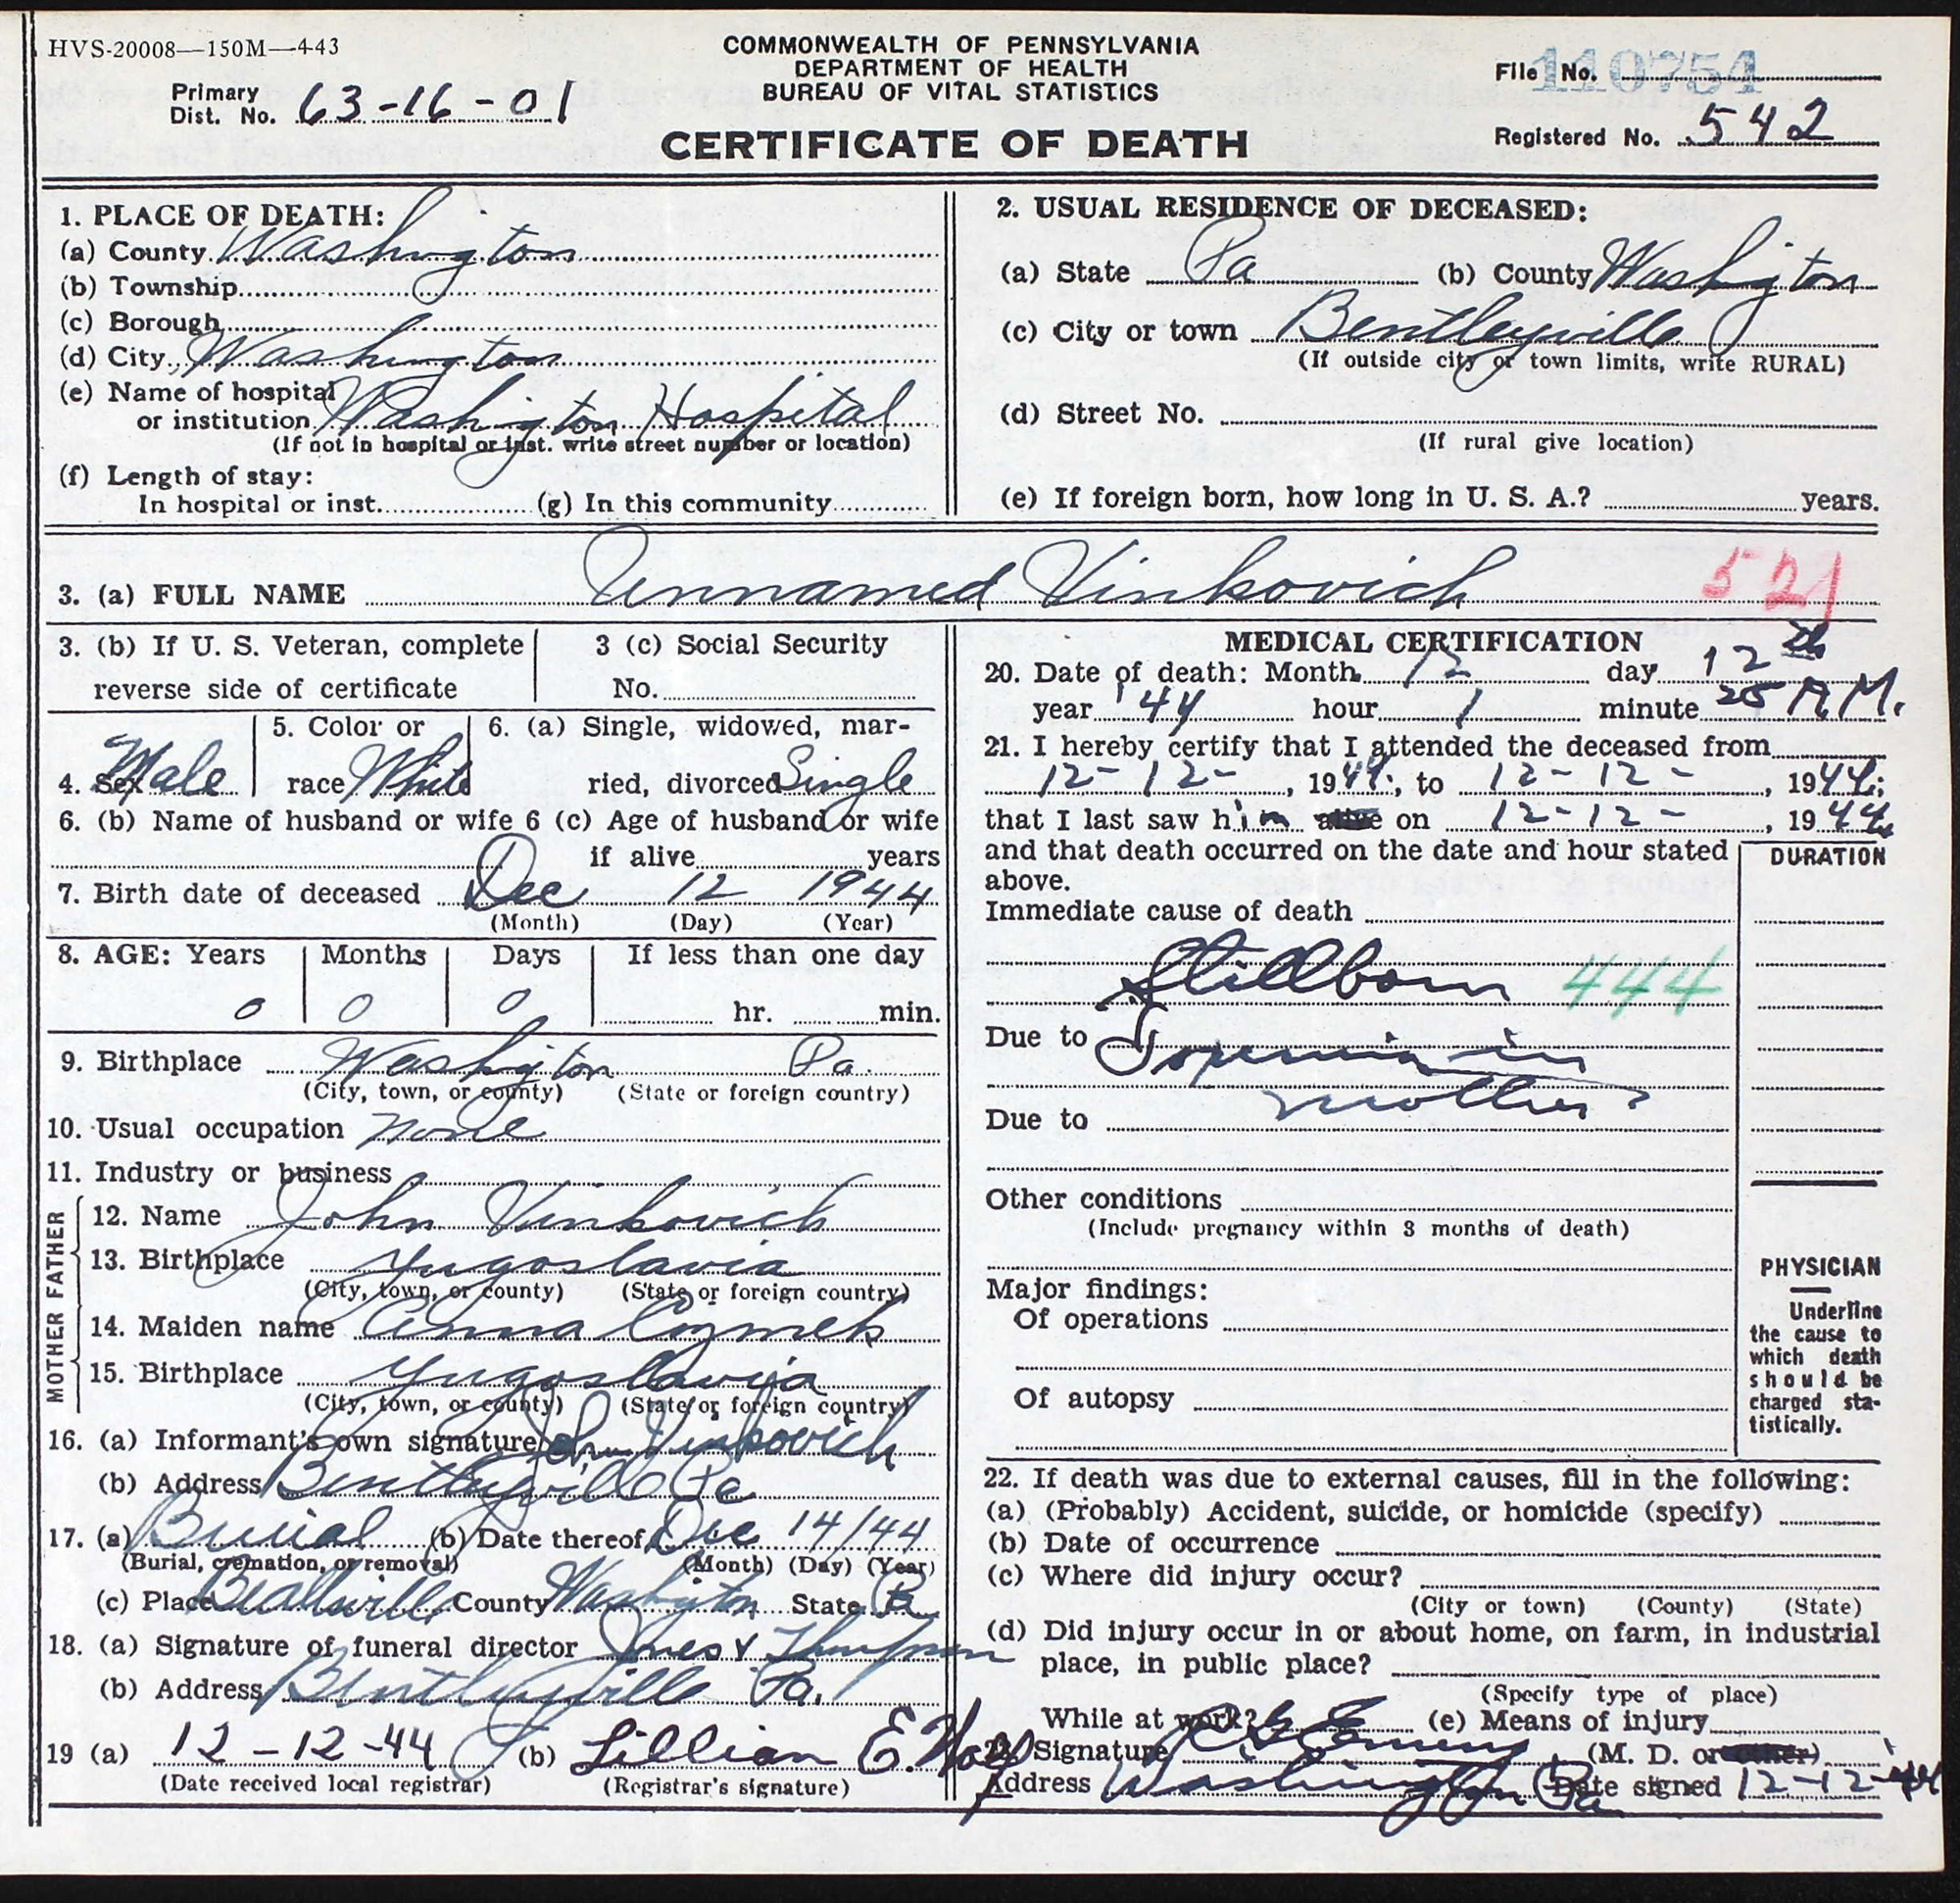 HVS-20008—150M—4-43
COMMONWEALTH OF PENNSYLVANIA
DEPARTMENT OF HEALTH
BUREAU OF VITAL STATISTICS
CERTIFICATE OF DEATH
Primary
Dist. No. 63-16-01
File No. 110754
Registered No. 542
1. PLACE OF DEATH:
(a) County Washington
(b) Township
(c) Borough
(d) City Washington
(e) Name of hospital
or institution Washington Hospital
(If not in hospital or inst. write street number or location)
(f) Length of stay:
In hospital or inst. (g) In this community
2. USUAL RESIDENCE OF DECEASED:
(a) State Pa (b) County Washington
(c) City or town Bentleyville
(If outside city or town limits, write RURAL)
(d) Street No.
(If rural give location)
(e) If foreign born, how long in U. S. A.? years.
3. (a) FULL NAME Unnamed Vinkovich 521
3. (b) If U. S. Veteran, complete
reverse side of certificate
3 (c) Social Security
No.
4. Sex Male
5. Color or
race White
6. (a) Single, widowed, mar-
ried, divorced Single
6. (b) Name of husband or wife 6 (c) Age of husband or wife
if alive years
7. Birth date of deceased Dec 12 1944
(Month) (Day) (Year)
8. AGE: Years Months Days If less than one day
0 0 0 hr. min.
9. Birthplace Washington Pa.
(City, town, or county) (State or foreign country)
10. Usual occupation none
11. Industry or business
FATHER
12. Name John Vinkovich
13. Birthplace Yugoslavia
(City, town, or county) (State or foreign country)
MOTHER
14. Maiden name Anna
15. Birthplace Yugoslavia
(City, town, or county) (State or foreign country)
16. (a) Informant's own signature John Vinkovich
(b) Address Bentleyville Pa
17. (a) Burial (b) Date thereof Dec 14/44
(Burial, cremation, or removal) (Month) (Day) (Year)
(c) Place Beallsville County Washington State Pa
18. (a) Signature of funeral director Jones & Thompson
(b) Address Bentleyville Pa.
19 (a) 12-12-44 (b) Lillian E.
(Date received local registrar) (Registrar's signature)
MEDICAL CERTIFICATION
20. Date of death: Month 12 day 12th
year '44 hour 1 minute 25 A.M.
21. I hereby certify that I attended the deceased from
12-12-, 1944; to 12-12-, 1944;
that I last saw him alive on 12-12-, 1944
and that death occurred on the date and hour stated
above.
DURATION
Immediate cause of death
Stillborn 444
Due to Toxemia in
mother
Due to
Other conditions
(Include pregnancy within 3 months of death)
Major findings:
Of operations
Of autopsy
PHYSICIAN
Underline
the cause to
which death
should be
charged sta-
tistically.
22. If death was due to external causes, fill in the following:
(a) (Probably) Accident, suicide, or homicide (specify)
(b) Date of occurrence
(c) Where did injury occur?
(City or town) (County) (State)
(d) Did injury occur in or about home, on farm, in industrial
place, in public place?
(Specify type of place)
While at work? (e) Means of injury
Signature (M. D. or other)
Address Washington Pa Date signed 12-12-'44